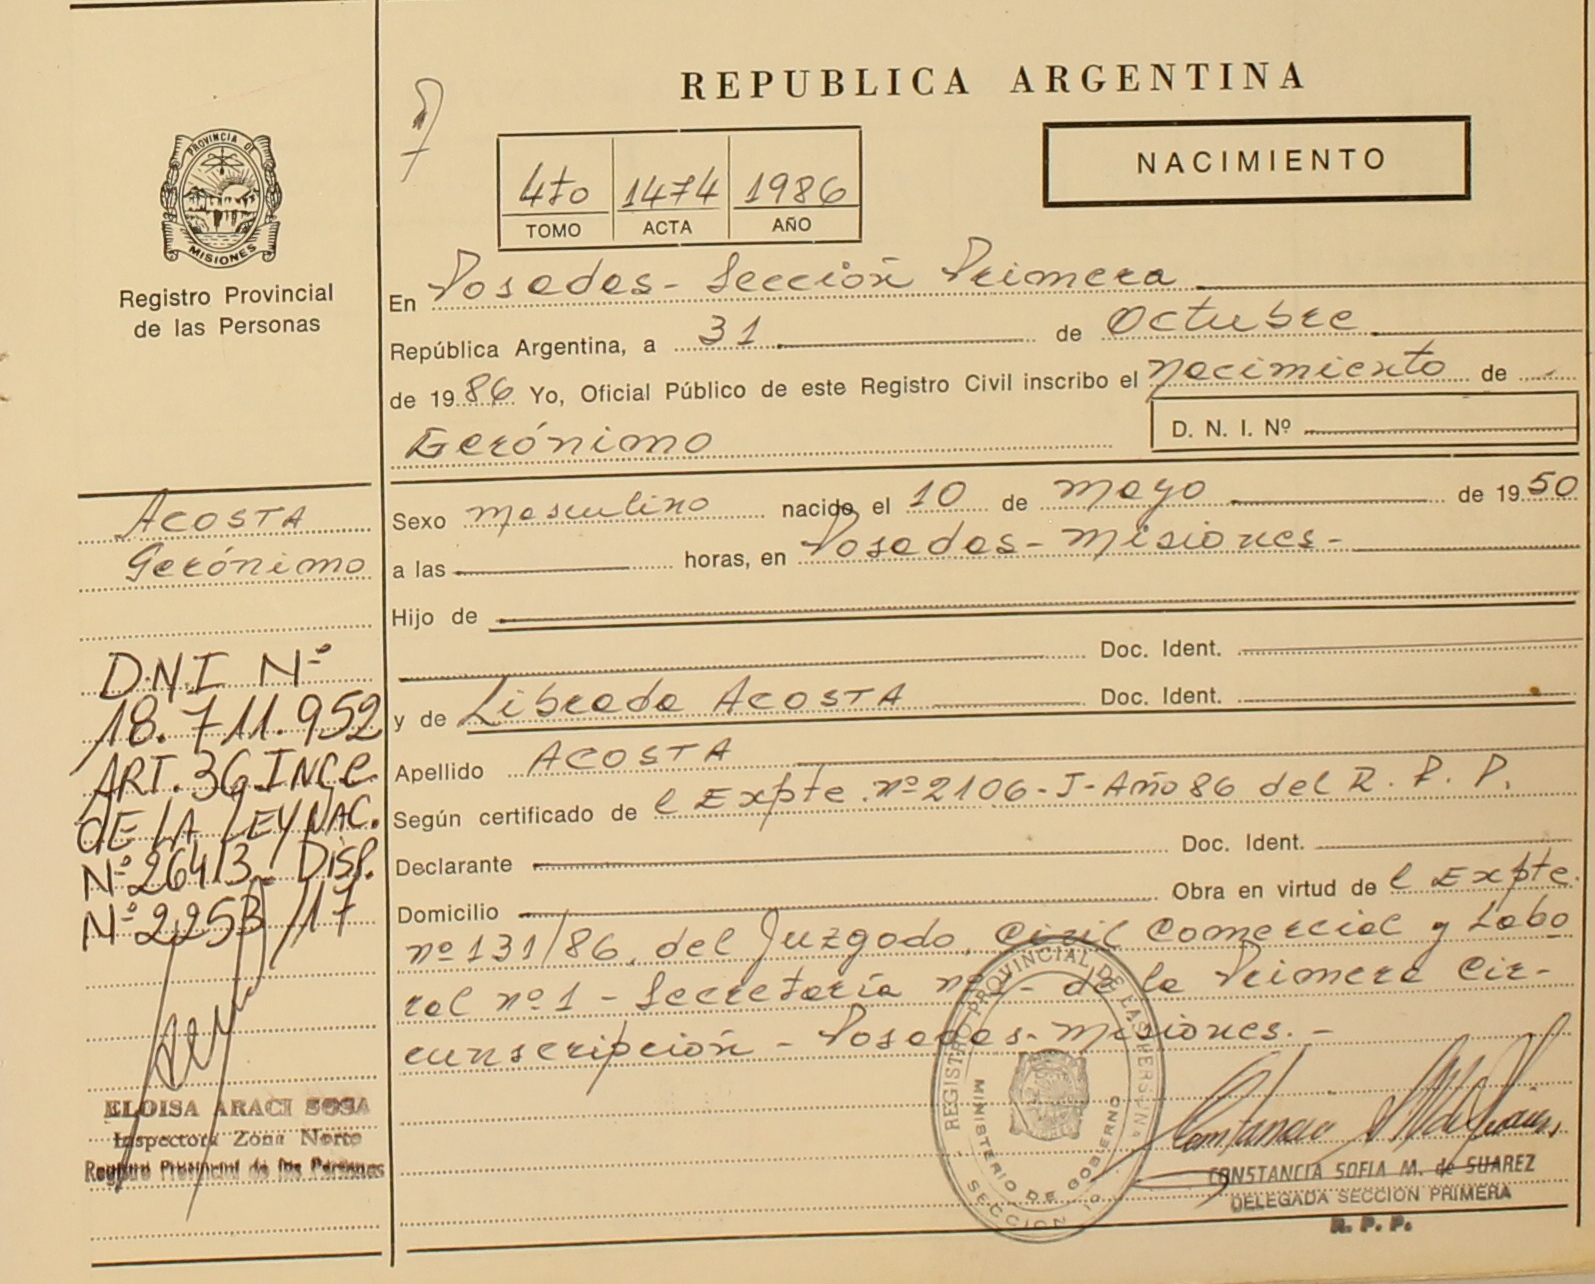 PROVINCIA DE
MISIONES
Registro Provincial
de las Personas
ACOSTA
Gerónimo
D.N.I Nº
18.711.952
ART. 36 INC C.
DE LA LEY NAC.
Nº 26413 DISP.
Nº 2253/17
ELOISA ARACI SOSA
Inspectora Zona Norte
Registro Provincial de las Personas
REPUBLICA ARGENTINA
4to 1474 1986
TOMO ACTA AÑO
NACIMIENTO
En Posadas - Sección Primera
República Argentina, a 31 de Octubre
de 1986 Yo, Oficial Público de este Registro Civil inscribo el Nacimiento de
Gerónimo D. N. I. Nº
Sexo masculino nacido el 10 de mayo de 1950
a las horas, en Posadas - Misiones -
Hijo de
Doc. Ident.
y de Librada ACOSTA Doc. Ident.
Apellido ACOSTA
Según certificado de l Expte nº 2106 - J - Año 86 del R. P. P.
Declarante Doc. Ident.
Domicilio Obra en virtud de l Expte.
nº 131/86, del Juzgado, Civil Comercial y Labo
ral nº 1 - Secretaría nº 1 - de la Primera Cir-
cunscripción - Posadas - Misiones. -
REGISTRO PROVINCIAL DE LAS PERSONAS
MINISTERIO DE GOBIERNO
SECCION 1º
CONSTANCIA SOFIA M. de SUAREZ
DELEGADA SECCION PRIMERA
R. P. P.